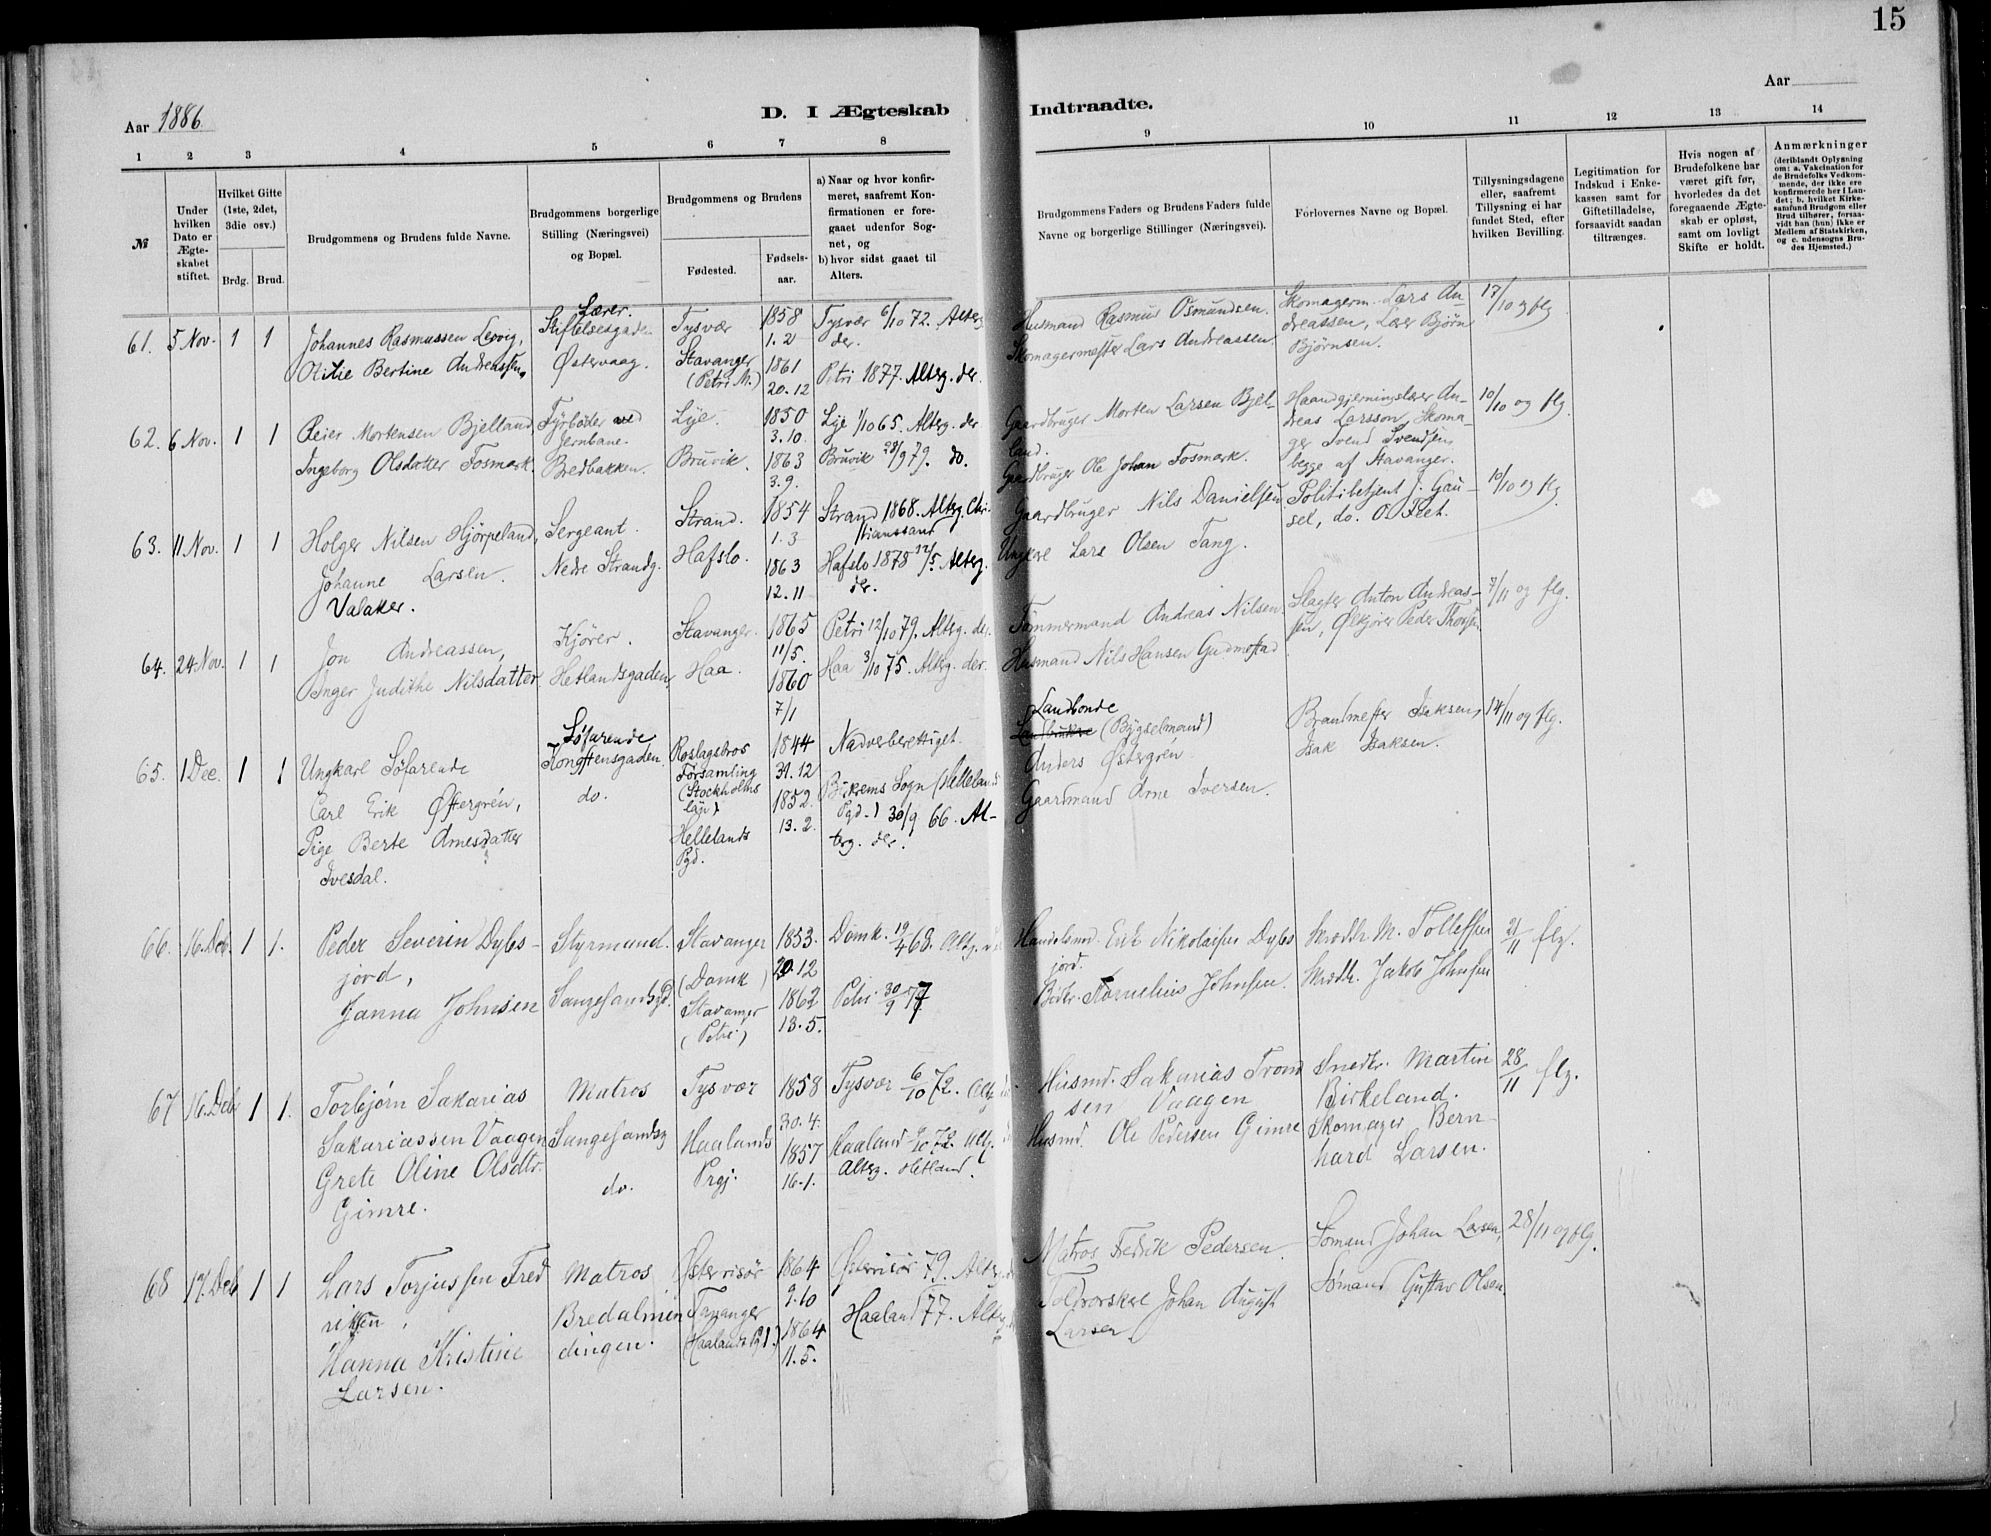 15
Aar 1886
D. I Ægteskab
Indtraadte.
Aar
1 2 3 4 5 6 7 8
9 10 11 12 13 14
№
Under
hvilken
Dato er
Ægte-
skabet
stiftet.
Hvilket Gifte
(1ste, 2det,
3die osv.)
Brdg. Brud.
Brudgommens og Brudens fulde Navne.
Brudgommens borgerlige
Stilling (Næringsvei)
og Bopæl.
Brudgommens og Brudens
Fødested.
Fødsels-
aar.
a) Naar og hvor konfir-
meret, saafremt Kon-
firmationen er fore-
gaaet udenfor Sog-
net, og
b) hvor sidst gaaet til
Alters.
Brudgommens Faders og Brudens Faders fulde
Navne og borgerlige Stillinger (Næringsvei).
Forlovernes Navne og Bopæl.
Tillysningsdagene
eller, saafremt
Tillysning ei har
fundet Sted, efter
hvilken Bevilling.
Legitimation for
Indskud i Enke-
kassen samt for
Giftetilladelse,
forsaavidt saadan
tiltrænges.
Hvis nogen af
Brudefolkene har
været gift før,
hvorledes da det
foregaaende Ægte-
skab er opløst,
samt om lovligt
Skifte er holdt.
Anmærkninger
(deriblandt Oplysning
om: a. Vakcination for
de Brudefolks Vedkom-
mende, der ikke ere
konfirmerede her i Lan-
det; b. hvilket Kirke-
samfund Brudgom eller
Brud tilhører, forsaa-
vidt han (hun) ikke er
Medlem af Statskirken,
og c. udensogns Bru-
des Hjemsted.)
61. 5 Nov. 1 1
Johannes Rasmussen Lervig,
Otilie Bertine Andreassen
Lærer.
Stiftelsesgaden
Østervaag.
Tysvær
Stavanger
(Petri M.)
1858
1.2
1861
20.12
Tysvær 6/10 72. Alterg.
der.
Petri 1877. Alterg. der.
Husmand Rasmus Osmundsen.
Skomagermester Lars Andreassen.
Skomagerm. Lars An-
dreassen, Lærer Bjørn
Bjørnsen.
17/10 og flg
62. 6 Nov. 1 1
Reier Mortensen Bjelland
Ingeborg Olsdatter Fosmark.
Fyrbøder ved
Jernbane.
Bredbakken.
Lye.
Bruvik.
1850
3.10.
1863
3.9.
Lye 1/10 65. Alterg. der
Bruvik 28/9 79. do.
Gaardbruger Morten Larsen Bjel-
land.
Gaardbruger Ole Johan Fosmark.
Haandgjerningslærer An-
dreas Larsson, Skoma-
ger Svend Svendsen,
begge af Stavanger.
10/10 og flg
63. 11 Nov. 1 1
Holger Nilsen Hjörpeland,
Johanne Larsen.
Valaker.
Sergeant.
Nedre Strandg.
Strand.
Hafslo.
1854
1.3
1863
12.11
Strand 1868. Alterg. Chri-
stianssand
Hafslo 1878 12/5. Alterg.
der.
Gaardbruger Nils Danielsen
Ungkarl Lars Olsen Tang.
Politibetjent J. Gau-
sel, do. O. Tiet.
10/10 og flg
64. 24 Nov. 1 1
Jon Andreassen,
Inger Judithe Nilsdatter.
Kjører.
Hetlandsgaden,
Stavanger.
Haa.
1865
11/5.
1860
7/1
Petri 12/10 79. Alterg. der.
Haa 3/10 75. Alterg. der.
Tømmermand Andreas Nilsen
Husmand Nils Hansen Gudmestad
Slagter Anton Andreas-
sen, Ølkjører Peder Thorsen.
7/11 og flg.
65. 1 Dec. 1 1
Ungkarl Søfarende
Carl Erik Østergrén,
Pige Berte Arnesdatter
Ivesdal.
Søfarende
Kongstensgaden.
do.
Roslagsbros
Forsamling
(Stockholms
län)
Hellelands
Pgd.
1844
31.12
1852.
13.2.
Nadverberettiget.
Bjerkreims Sogn (Helleland
Pgd.) 30/9 66. Al-
terg. der.
Landbonde
(Bygselmand)
Anders Østergrén
Gaardmand Arne Iversen.
Brandmester Isaksen,
Isak Isaksen.
14/11 og flg.
66. 16. Dcb. 1 1.
Peder Severin Dybs-
jord,
Janna Johnsen
Styrmand.
Sangesandsgd.
Stavanger
(Domk)
Stavanger
(Petri)
1853.
20.12
1862
13.5.
Domk. 19/4 68. Altg.
Petri 30/9 77
Handelsmd. Erik Nikolaisen Dybs
jord.
Bødk. Kornelius Johnsen.
Skrædder M. Tollefsen
Skrædd. Jakob Johnsen
21/11 flg.
67 16. Dcb 1 1.
Torbjørn Sakarias
Sakariassen Vaagen
Grete Oline Olsdtr.
Gimre.
Matros
Sangesandsg
do.
Tysvær
Haalands
Prgj.
1858
30.4.
1857
16-1.
Tysvær 6/10 72. Altg.
Haaland 6/10 72. Altg.
Alterg. Hetland.
Husmd. Sakarias Trond
sen Vaagen
Husmd. Ole Pedersen Gimre
Snedkr. Martin
Birkeland.
Skomager Bern-
hard Larsen.
28/11 flg.
68 17. Dcb 1 1
Lars Torjussen Fred
riksen,
Hanna Kristine
Larsen.
Matros
Bredalmen
dingen.
Østerrisør
Tananger
(Haalands Pgj.)
1864
9.10
1864
11.5.
Østerrisør 79. Alterg.
Haaland 77. Alterg.
Matros Fredrik Pedersen
Toldrorskarl Johan August
Larsen
Sømand Johan Larsen,
Sømand Gustav Olsen
28/11 og flg.